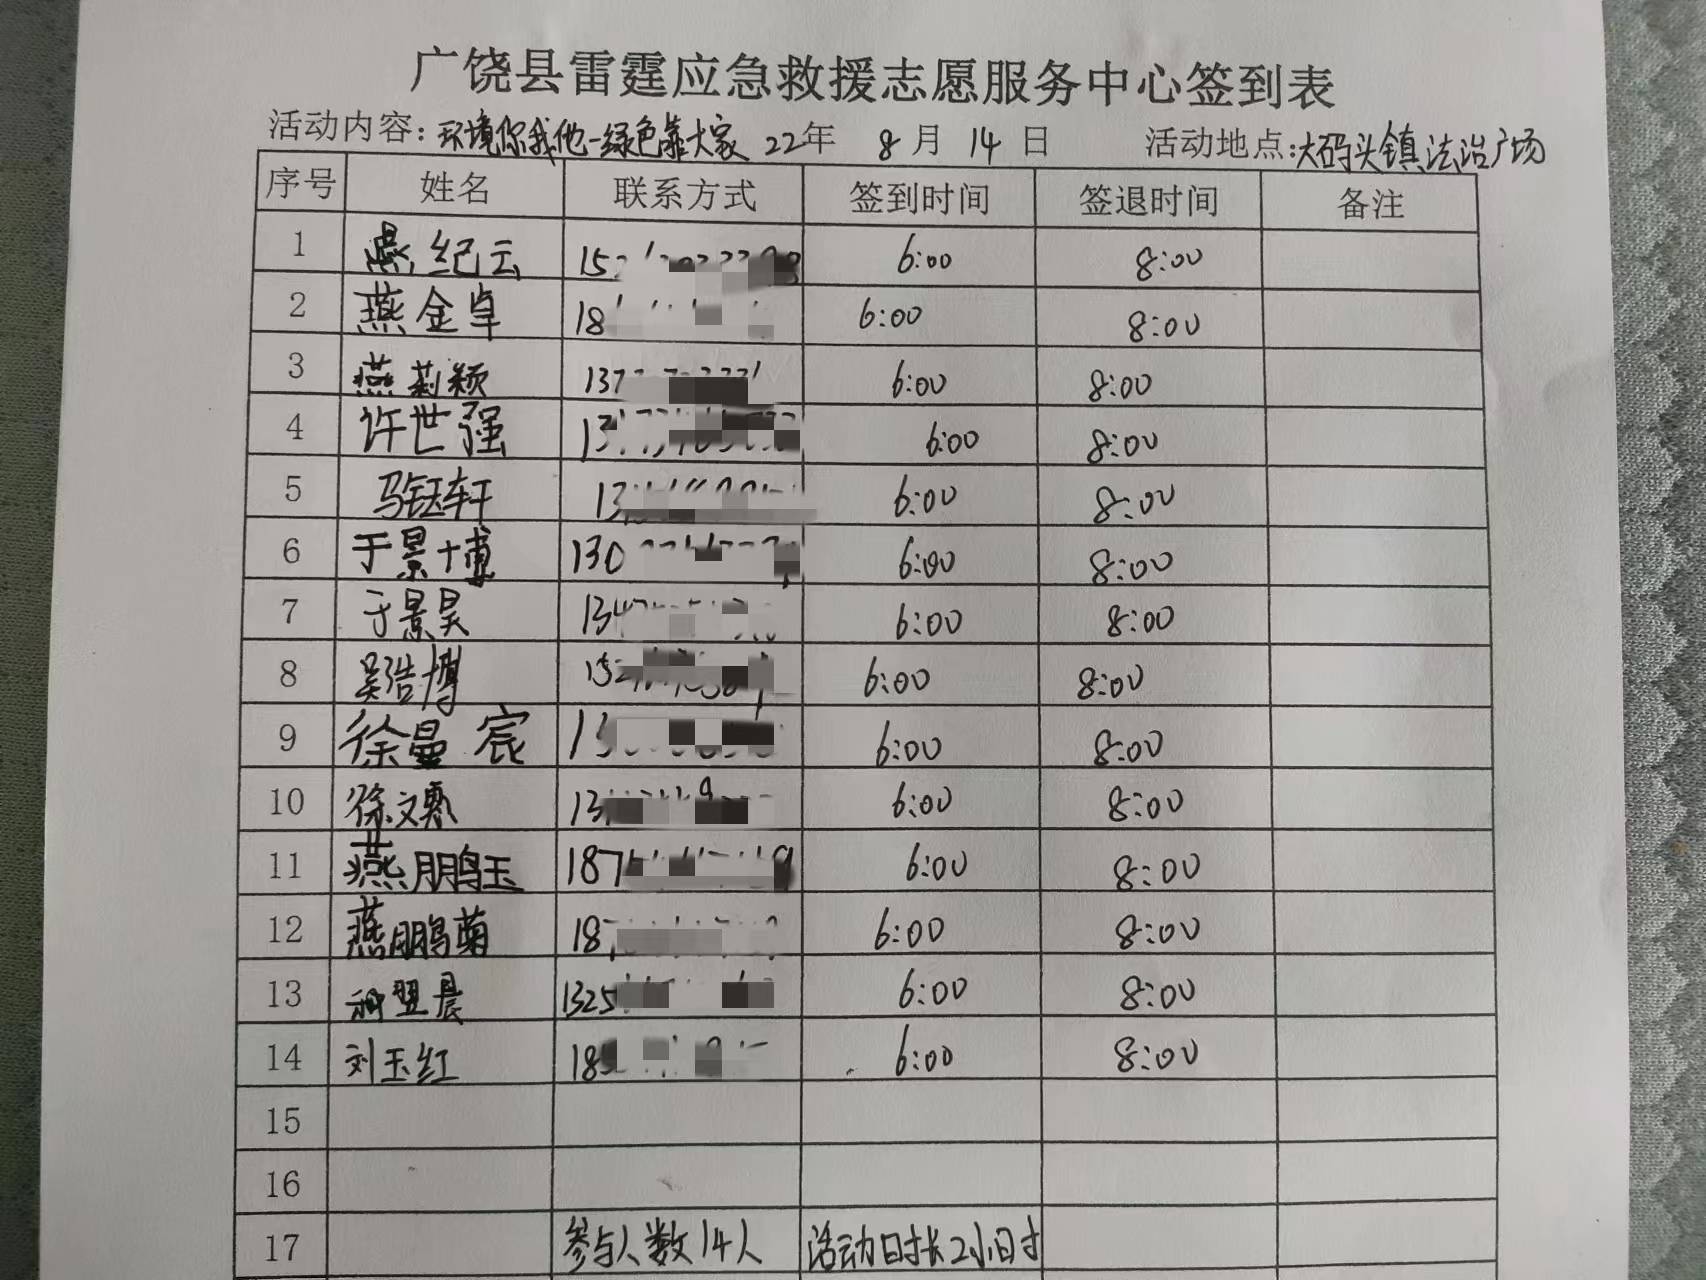 广饶县雷霆应急救援志愿服务中心签到表
活动内容：环境你我他-绿色靠大家 22年 8月 14日 活动地点：大码头镇法治广场
序号 姓名 联系方式 签到时间 签退时间 备注
1 燕纪云 6:00 8:00
2 燕金卓 18 6:00 8:00
3 燕莉颖 137 6:00 8:00
4 许世强 13 6:00 8:00
5 马钰轩 13 6:00 8:00
6 于景博 130 6:00 8:00
7 于景昊 134 6:00 8:00
8 吴浩博 152 6:00 8:00
9 徐曼宸 13 6:00 8:00
10 徐文 13 6:00 8:00
11 燕鹏玉 187 6:00 8:00
12 燕鹏菊 187 6:00 8:00
13 1325 6:00 8:00
14 刘玉红 18 6:00 8:00
15
16
17 参与人数14人 活动时长2小时